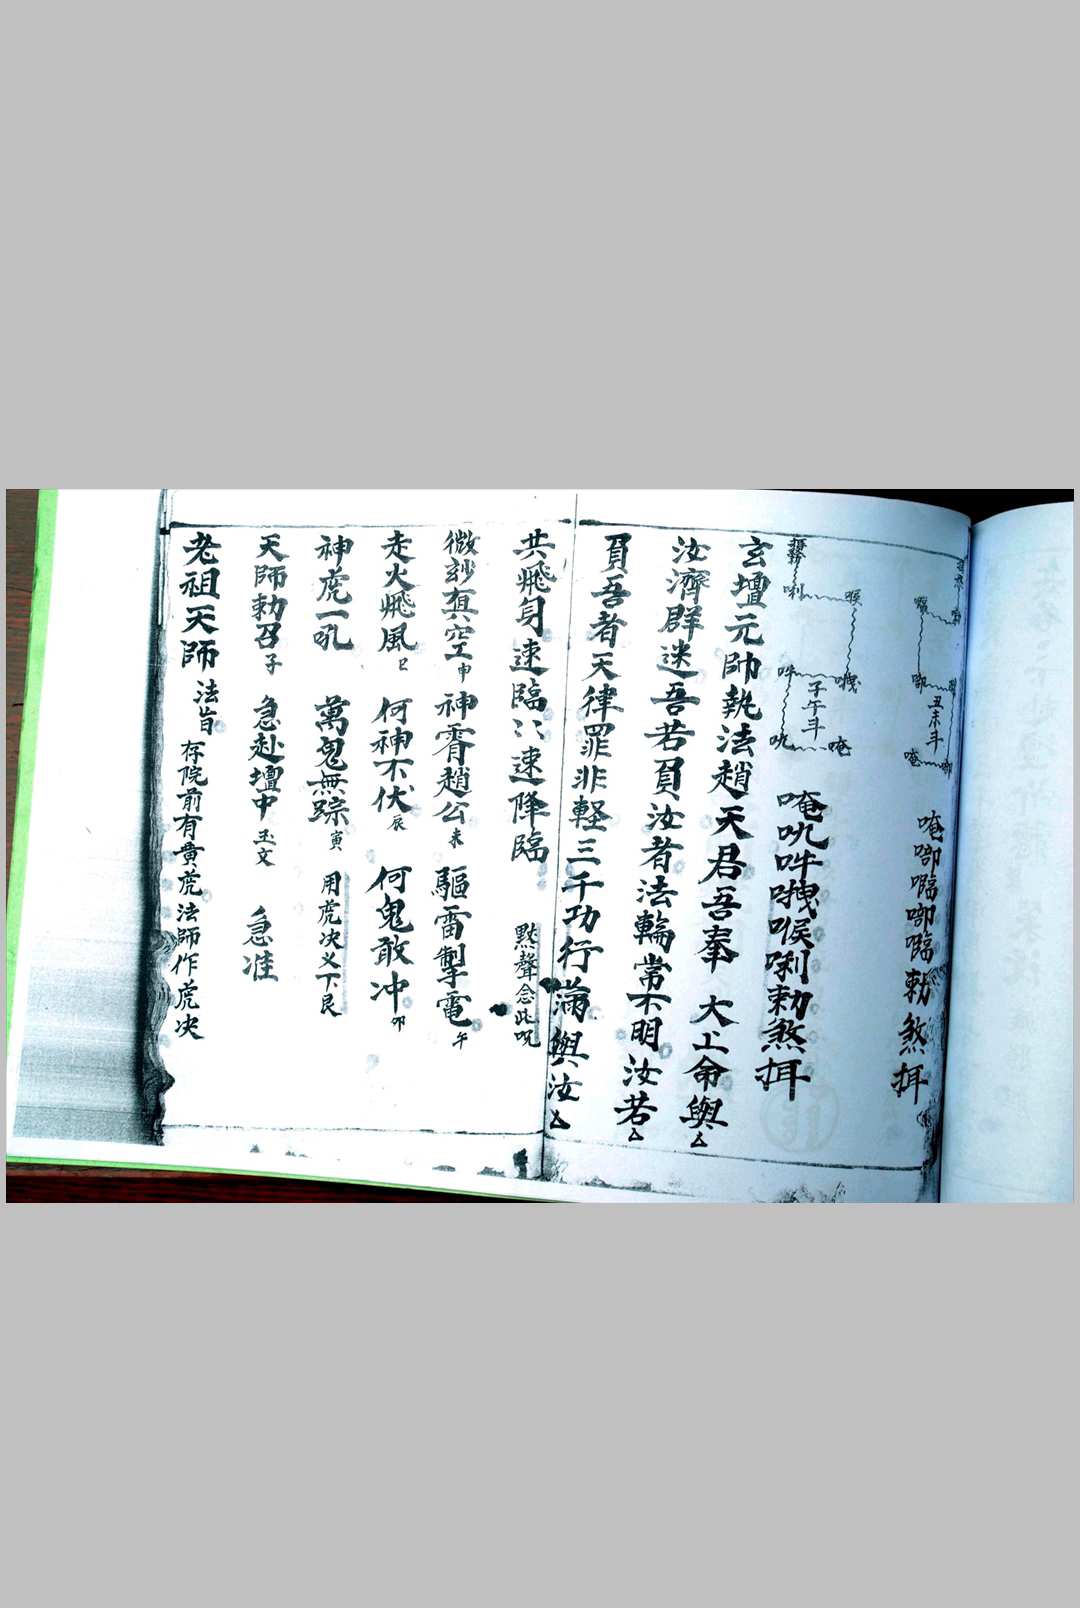 丑未斗
唵啣𡄥啣𡄥勅煞摄
子午斗
唵吼吽𠺕喉唎勅煞摄
玄壇元帥執法趙天君吾奉 大上命與
汝濟群迷吾若負汝者法輪常不明汝若
負吾者天律罪非軽三千功行滿與汝
共飛身速臨〻速降臨 默聲念此呪
微玅真空申 神霄趙公未 驅雷掣電午
走火飛風巳 何神不伏辰 何鬼敢冲卯
神虎一吼 萬鬼無踪寅 用虎决义下艮
天師勅召子 急赴壇中玉文 急准
老祖天師 法旨 存院前有黄虎法師作虎决